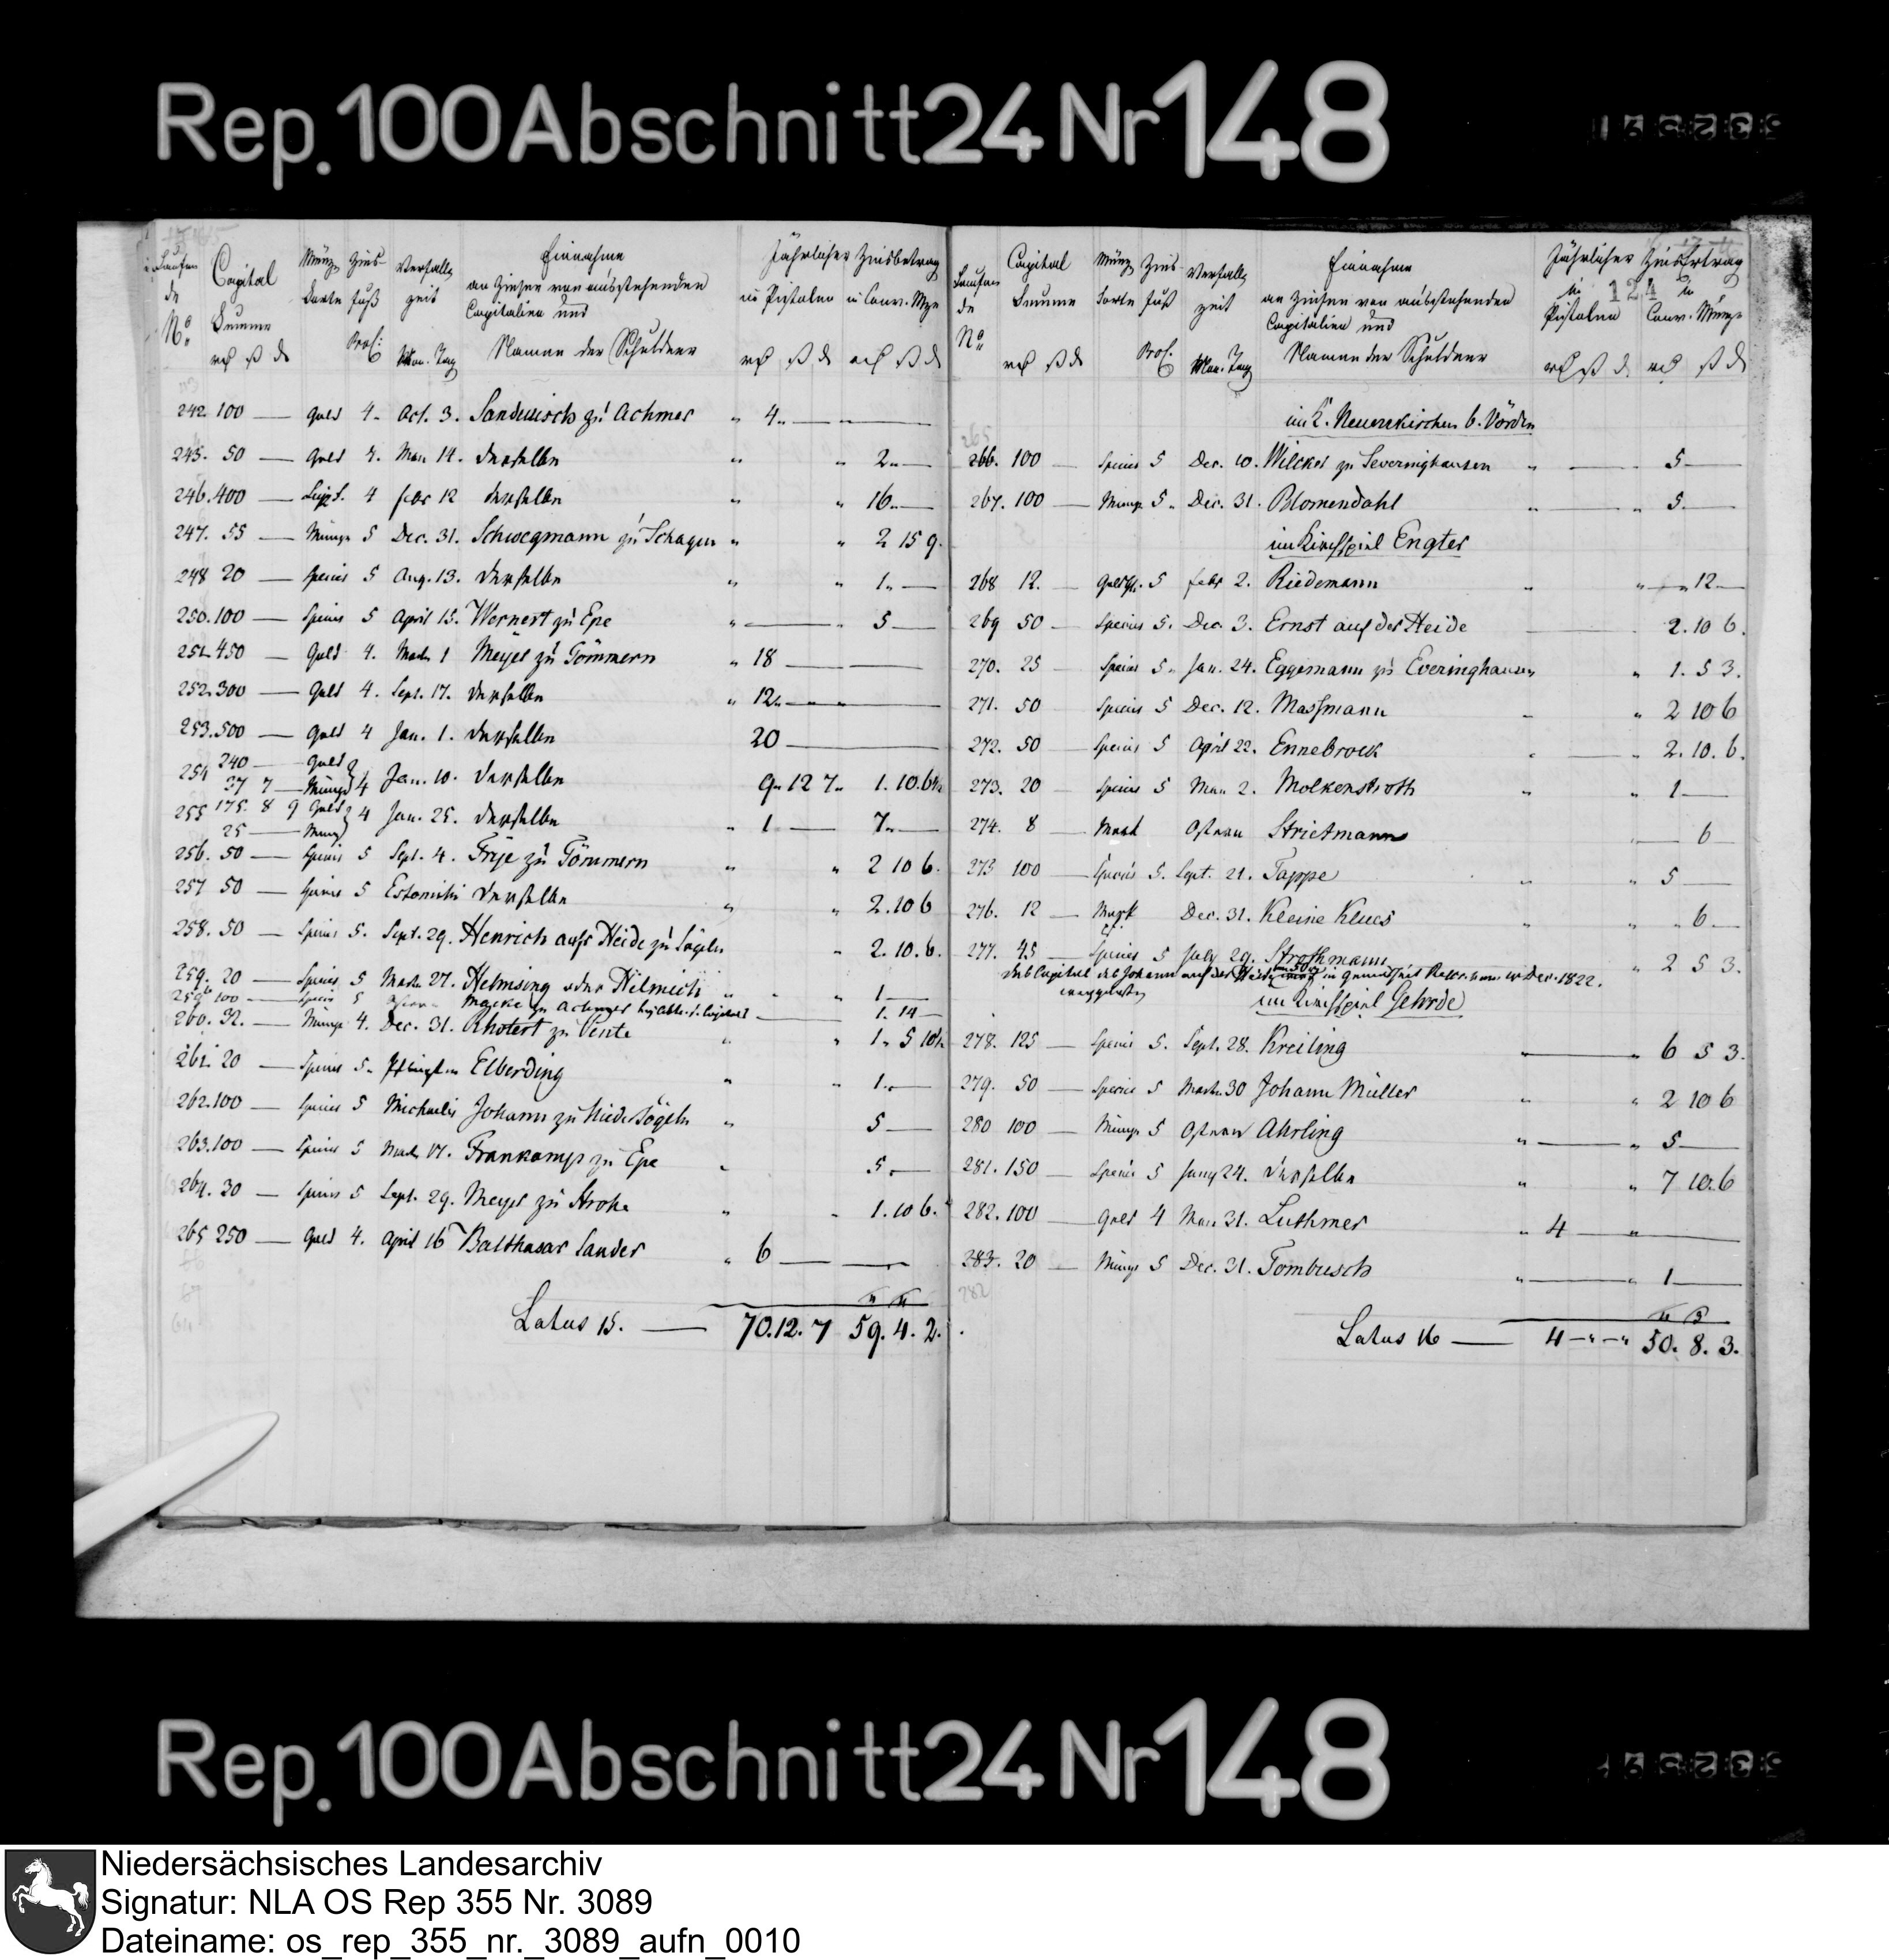 Rep. 100 Abschnitt 24 Nr 148
Laufende No.
Capital Summe
Münz Sorte
Zins fuß Proc:
Verfallzeit Mon. Tag
Einnahme an Zinsen von ausstehenden Capitalien und Namen der Schuldner
Jährlicher Zinsbetrag
in Pistolen in Conv. Mze
242. 100 — Gold 4. Oct. 3. Sandwisch zu Achmer " 4.. —
50 — Gold 4. May 14. derselbe " " 2.. —
246. 400 — 4 febr 12 derselbe " " 16.. —
247. 55 — Münze 5 Dec. 31. Schwegmann zu Schagen " " 2 15 9.
248 20 — Species 5 Aug. 13. derselbe " " 1.. —
250. 100 — Species 5 April 15. Wernert zu Epe " — " 5 —
251. 450 — Gold 4. März 1 Meyer zu Tömmern " 18 —
252. 300 — Gold 4. Sept. 17. derselbe " 12.. —
253. 500 — Gold 4 Jan. 1. derselbe 20 —
254 240 — Gold
37 7 — Münze 4 Jan. 10. derselbe 9.. 12 7.. 1. 10.
255 175. 8 9 Gold 4 Jan. 25. derselbe " 1 — 7.. —
25 — Münze
256. 50 — Species 5 Sept. 4. Frye zu Tömmern " " 2 10 6.
257 50 — Species 5 Estomihi derselbe " " 2. 10 6
258. 50 — Species 5. Sept. 29. Henrich aufr Heide zu Sögeln " 2. 10. 6.
259. 20 — Species 5 März 27. Helmsing oder Hilmich " " 1 —
259b 100 — Species 5 Macke zu Achmer — 1. 14 —
260. 32. — Münze 4. Dec. 31. Rhotert zu Vente " " 1.. 5
261. 20 — Species 5.. Pfingsten Elberding " " 1.. —
262. 100 — Species 5 Michaelis Johann zu Niedersögeln " 5 —
263. 100 — Species 5 März 17. Frankamp zu Epe " 5. —
264. 30 — Species 5 Sept. 29. Meyer zu Strohe " " 1. 10 6.
265 250 — Gold 4. April 16 Balthasar Sander " 6 —
Latus 15. — 70. 12. 7 59. 4. 2.
124
Laufende No.
Capital Summe
Münz Sorte
Zins fuß Proc.
Verfallzeit Mon. Tag
Einnahme an Zinsen von ausstehenden Capitalien und Namen der Schuldner
Jährlicher Zinsertrag
in Pistolen in Conv. Münze
im K. Neuenkirchen b. Vörden
265
266. 100 — Species 5 Dec. 10. Wilcker zu Severinghausen " — 5 —
267. 100 — Münze 5.. Dec. 31. Blomendahl " " 5 —
im Kirchspiel Engter
268 12. — Goldfl. 5 febr 2. Riedemann " " — 12 —
269 50 — Species 5. Dec. 3. Ernst auf der Heide 2. 10 6.
270. 25 Species 5.. Jan. 24. Eggemann zu Everinghausen " 1. 5 3.
271. 50 Species 5 Dec. 12. Massmann " " 2 10 6
272. 50 — Species 5 April 22. Ennebrock " 2. 10. 6.
273. 20 — Species 5 May 2. Molkenstroth " " 1 —
274. 8 — Mark Ostern Strietmann 6 —
275 100 — Species 5. Sept. 21. Tappe " " 5 —
276. 12 — Mark Dec. 31. Kleine Klues " " 6 —
277. 45 — Species 5 July 29. Strothmann " 2 5 3.
Das Capital des Johann auf der Heide in Gemäßheit Rescr. vom 10 Dec. 1822.
im Kirchspiel Gehrde
278. 125 — Species 5. Sept. 28. Kreiling " — " 6 5 3.
279. 50 — Species 5 März 30 Johann Müller " " 2 10 6
280 100 — Münze 5 Ostern Ahrling " — " 5 —
281. 150 — Species 5 Juny 24. derselbe " " 7 10. 6
282. 100 — Gold 4 May 31. Luthmer " 4 — " —
283. 20 — Münze 5 Dec. 31. Tombusch " — " 1 —
282
Latus 16 — 4 — " — " 50. 8. 3.
Rep. 100 Abschnitt 24 Nr 148
Niedersächsisches Landesarchiv
Signatur: NLA OS Rep 355 Nr. 3089
Dateiname: os_rep_355_nr._3089_aufn_0010